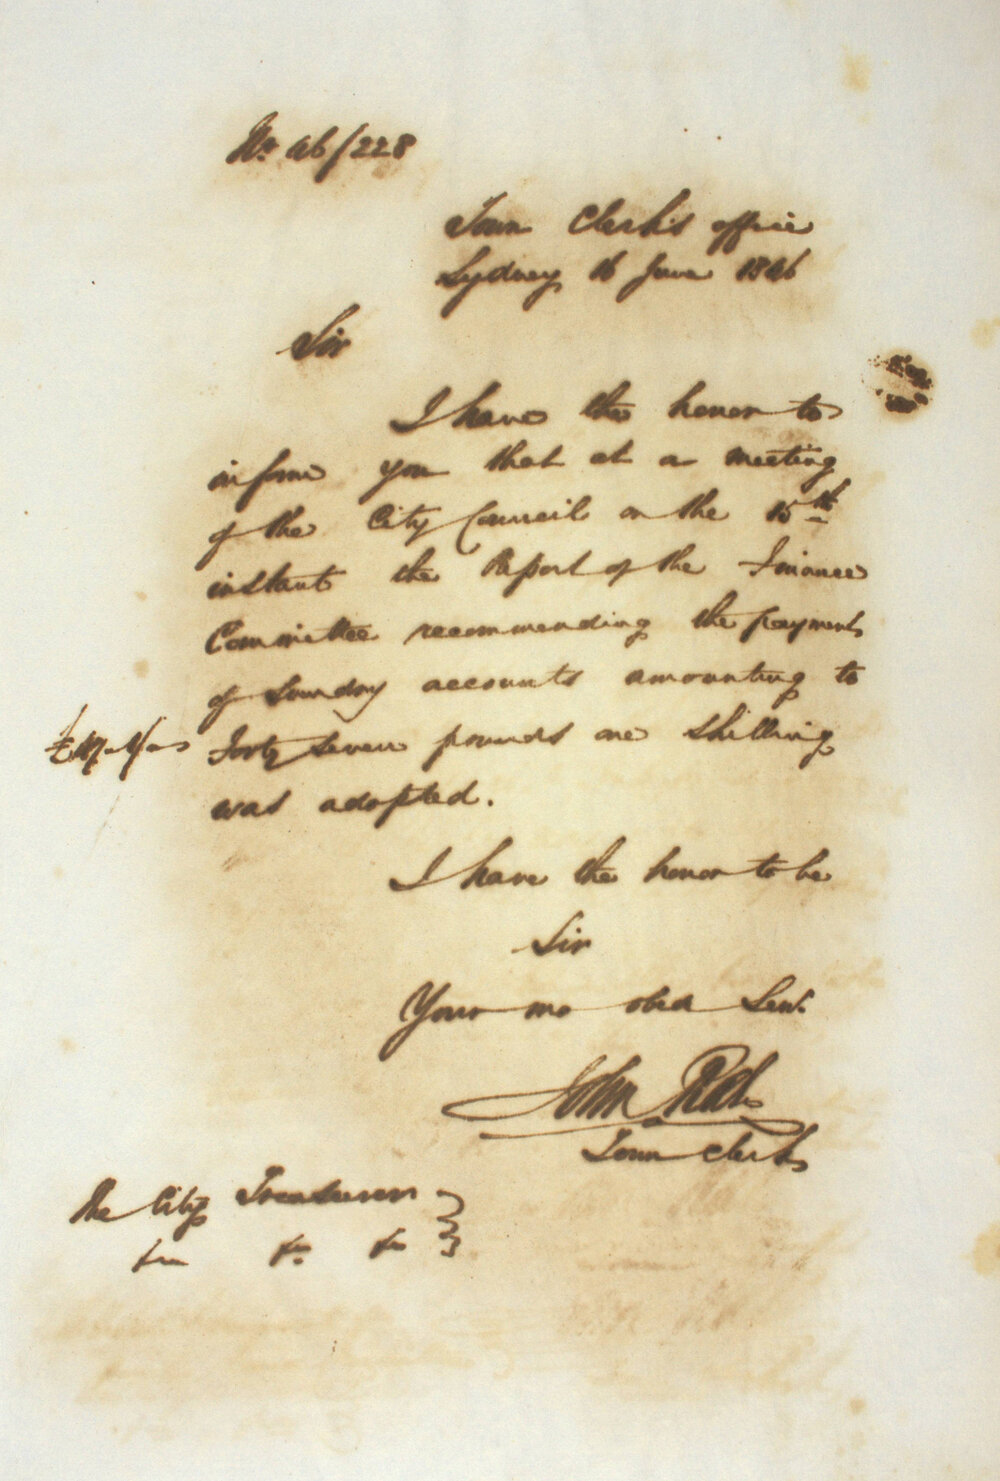 No. 46/228
Town Clerk's office
Sydney 16 June 1846
Sir
I have the honor to
inform you that at a meeting
of the City Council on the 15th
instant the Report of the Finance
Committee recommending the payment
of Sundry accounts amounting to
£47-1/-
Forty seven pounds one shilling
was adopted.
I have the honor to be
Sir
Your mo obed Servt.
John
Town Clerk
The City Treasurer